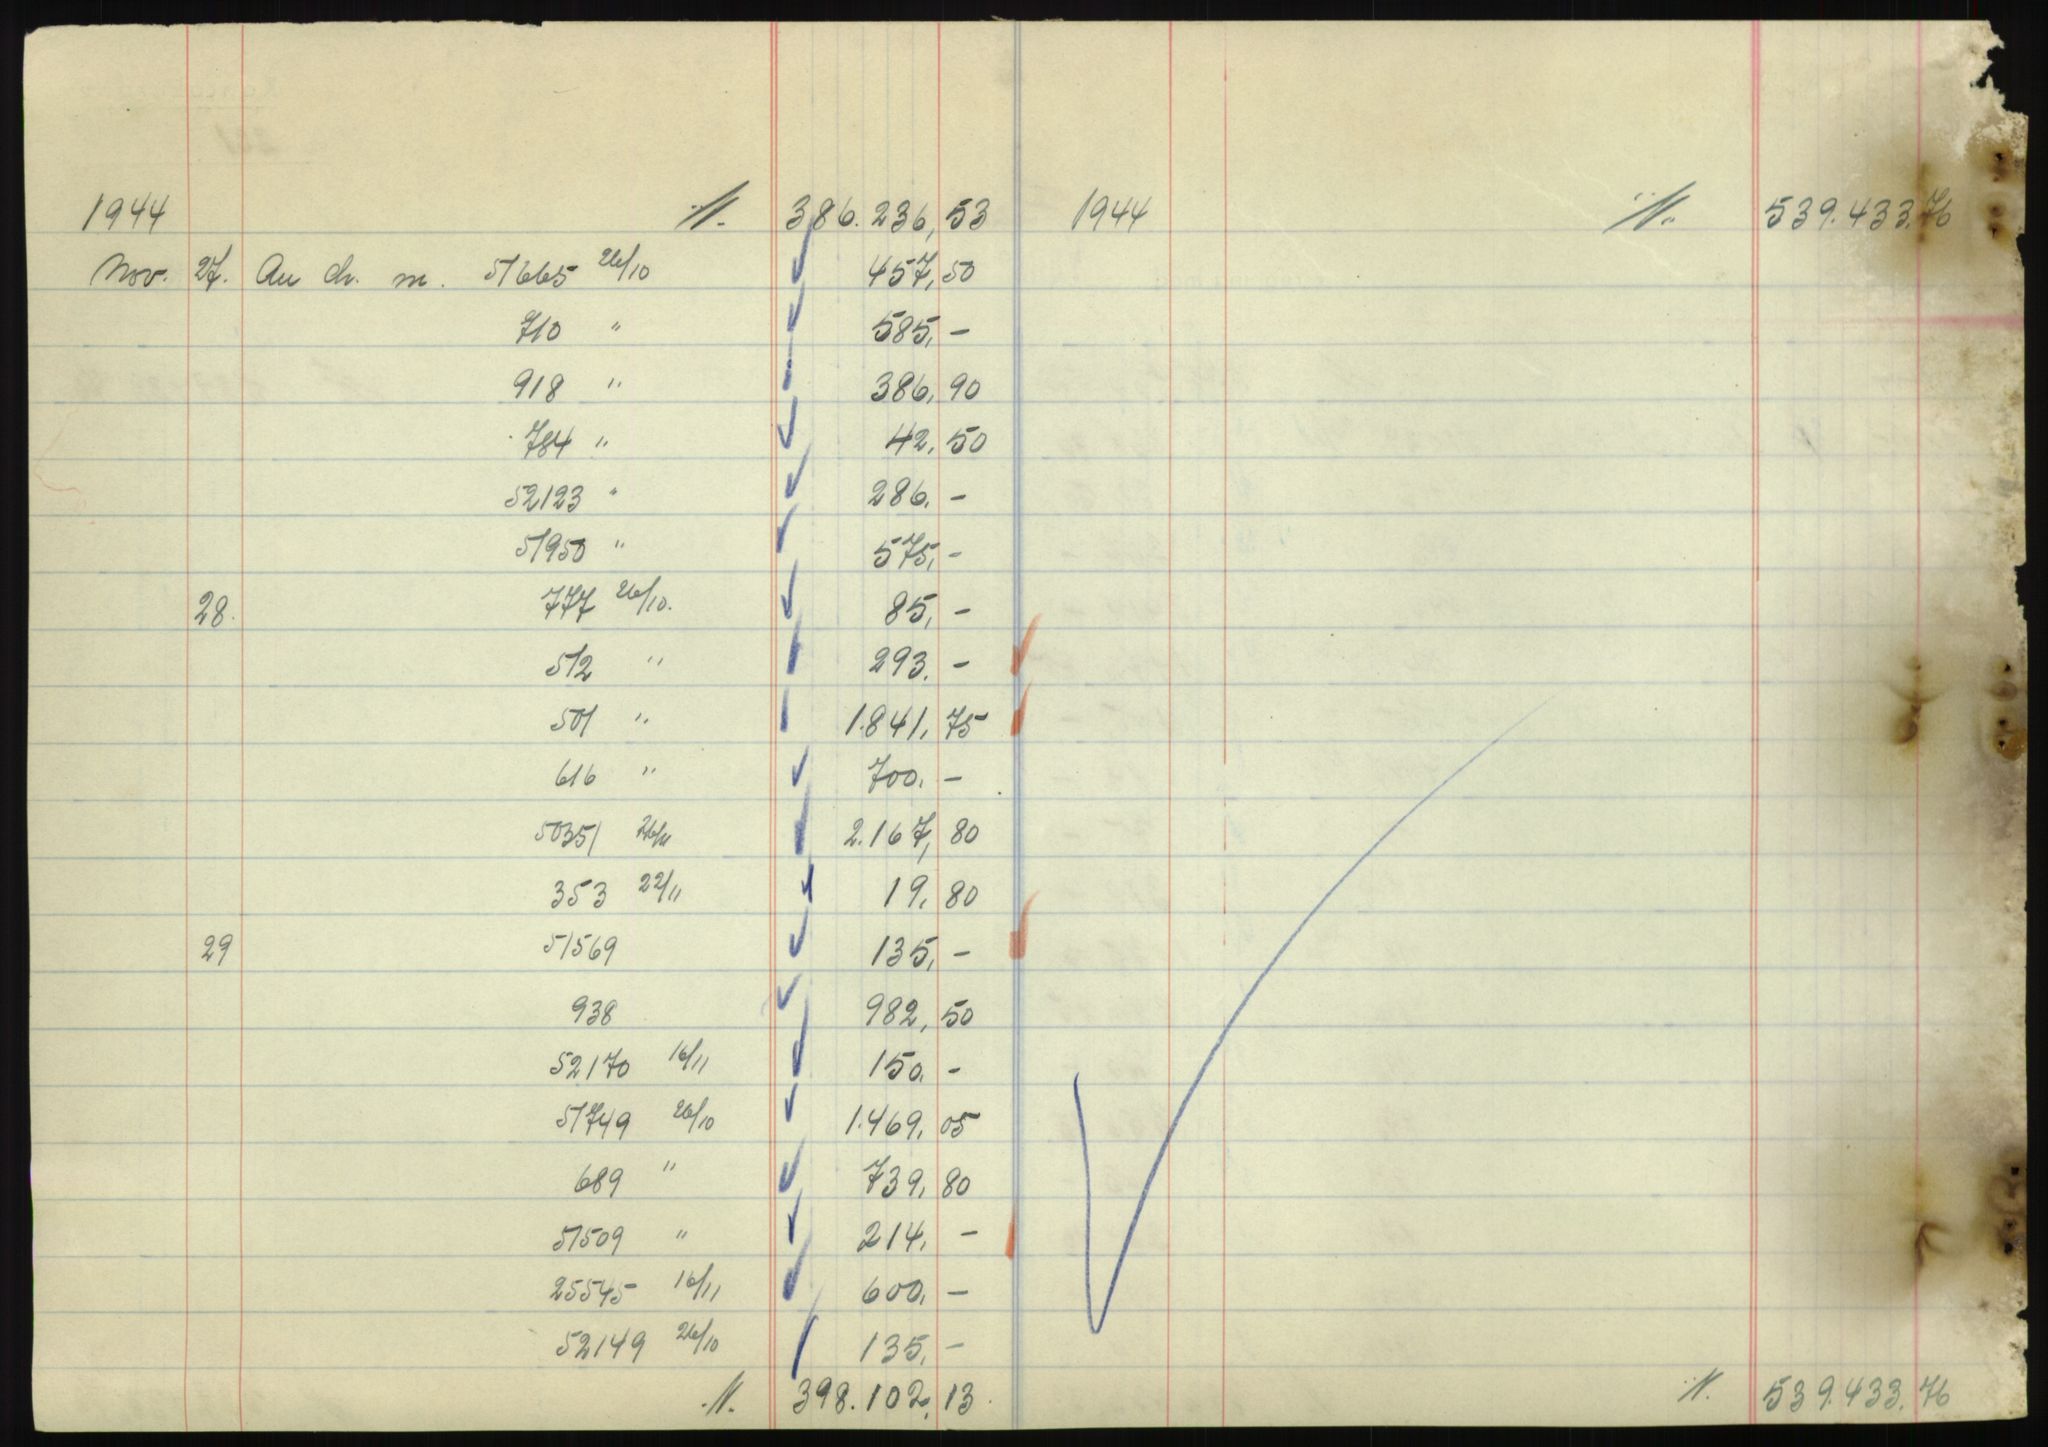 1944 ./. 386.236,53
Nov. 27. An ch. m. 51665 26/10 457,50
710 " 585,-
918 " 386,90
784 " 42,50
52123 " 286,-
51950 " 575,-
28. 777 26/10. 85,-
512 " 293.-
501 " 1.841,75
616 " 700.-
50351 2.167,80
353 22/11 19,80
29 51569 135,-
938 982,50
52170 16/11 150.-
51749 26/10 1.469,05
689 " 739,80
51509 " 214,-
25545 16/11 600,-
52149 26/10 135,-
./. 398.102,13.
1944 ./. 539.433.76
./. 539.433.76